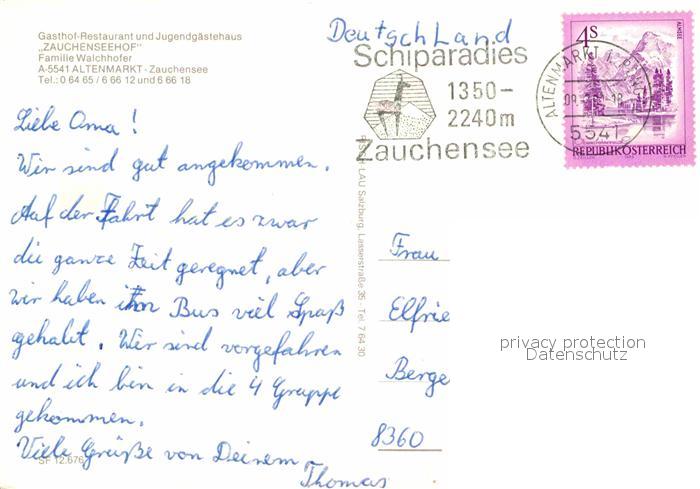 Gasthof-Restaurant und Jugendgästehaus
„ZAUCHENSEEHOF"
Familie Walchhofer
A-5541 ALTENMARKT - Zauchensee
Tel.: 0 64 65 / 6 66 12 und 6 66 18
Liebe Oma!
Wir sind gut angekommen.
Auf der Fahrt hat es zwar
die ganze Zeit geregnet, aber
wir haben im Bus viel Spaß
gehabt. Wir sind vorgefahren
und ich bin in die 4 Gruppe
gekommen.
Viele Grüße von Deinem
Thomas
SF 12.676
LAU Salzburg, Lasserstraße 35 - Tel. 7 64 30
Deutschland
Schiparadies
1350-
2240m
Zauchensee
ALTENMARKT I. PONG.
5541
4S
ALMSEE
REPUBLIK ÖSTERREICH
Frau
Elfrie
Berge
8360
privacy protection
Datenschutz